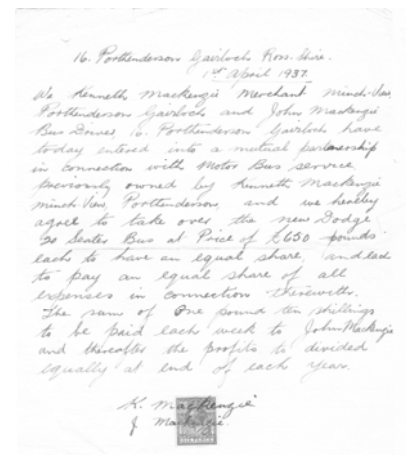 16. Porthenderson Gairloch Ross-Shire.
1st April 1937.
We Kenneth Mackenzie Merchant Minch-View
Porthenderson Gairloch and John Mackenzie
Bus Driver, 16. Porthenderson Gairloch have
today entered into a mutual partnership
in connection with Motor Bus service
previously owned by Kenneth Mackenzie
Minch View, Porthenderson, and we hereby
agree to take over the new Dodge
20 Seater Bus at Price of £650 pounds
each to have an equal share, and each
to pay an equal share of all
expenses in connection therewith.
The sum of One pound ten shillings
to be paid each week to John Mackenzie
and thereafter the profits to divided
equally at end of each year.
K. Mackenzie
J Mackenzie.